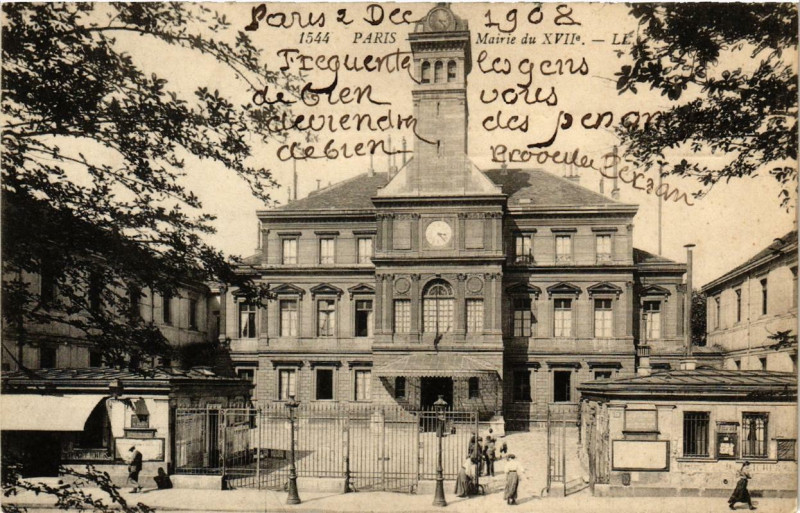 Paris 2 Dec 1908
1544 PARIS - Mairie du XVIIe. - LL
Frequente les gens
de bien vous
deviendrez des penan
de bien
Proverbe Persan